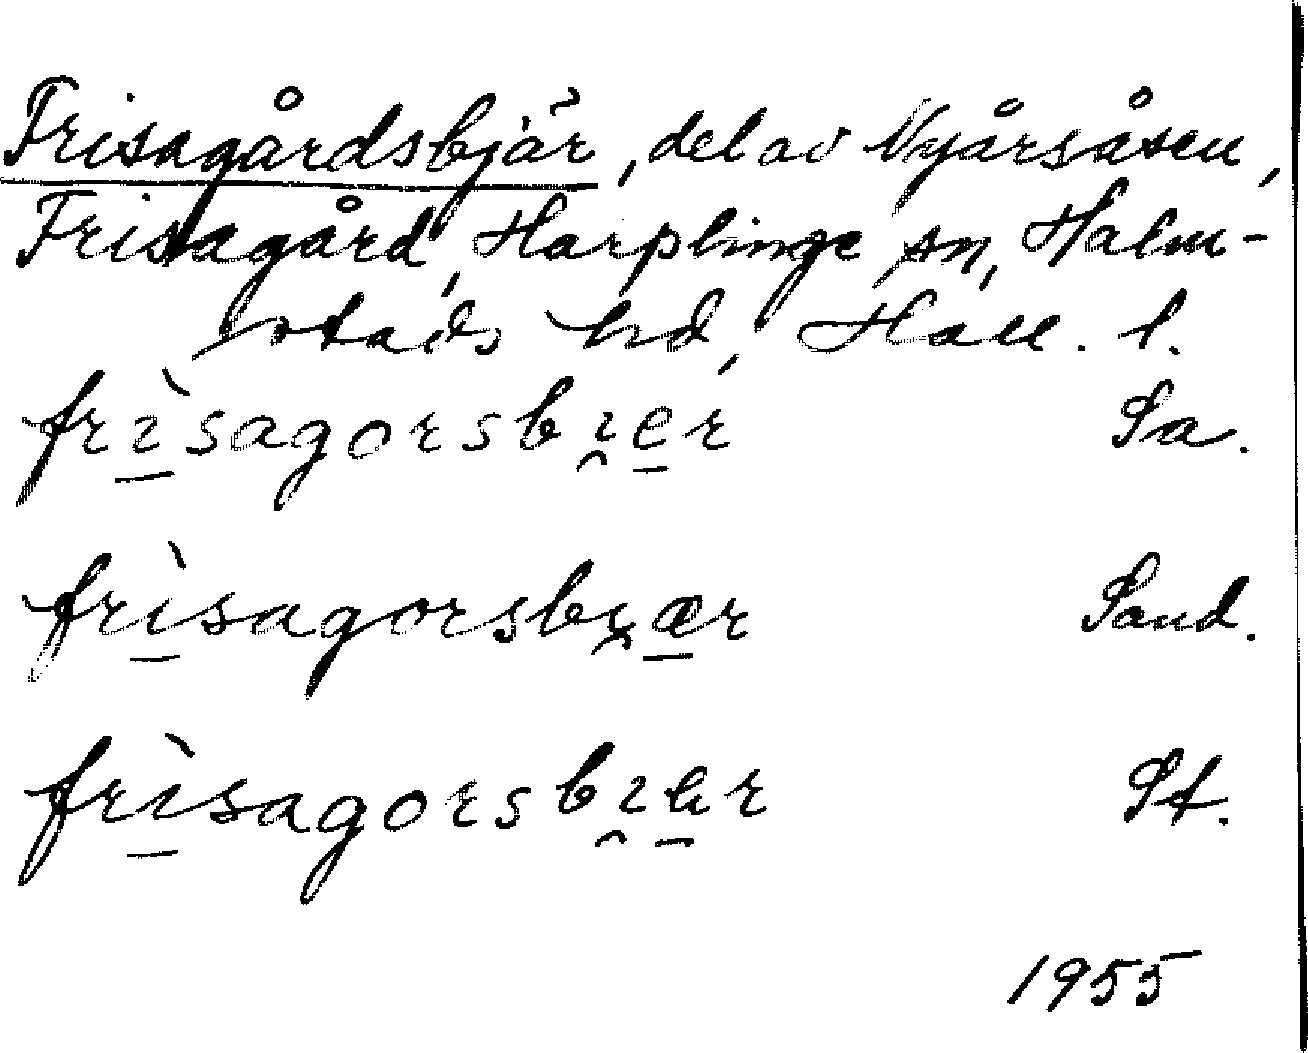 Frisagårdsbjär, del av Nyårsåsen,
Frisagård, Harplinge sn, Halm-
stads hd, Hall. l.
frìsagorsbı̯er Sa.
frìsagorsbı̯ær Sand.
frìsagorsbı̯ar St.
1955